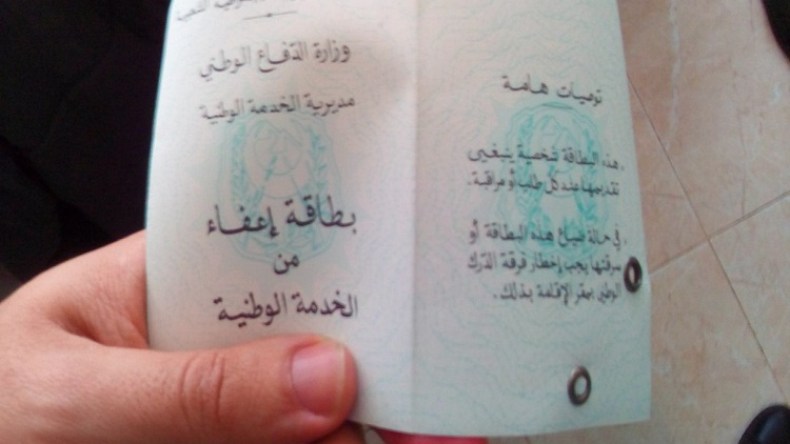 وزارة الدّفاع الوطني
مديرية الخدمة الوطنية
بطاقة إعفاء
من
الخدمة الوطنية
توصيات هامة
. هذه البطاقة شخصية ينبغي
تقديمها عند كل طلب أو مراقبة .
. في حالة ضياع هذه البطاقة أو
سرقتها يجب إخطار فرقة الدّرك
الوطني بمقر الإقامة بذلك .